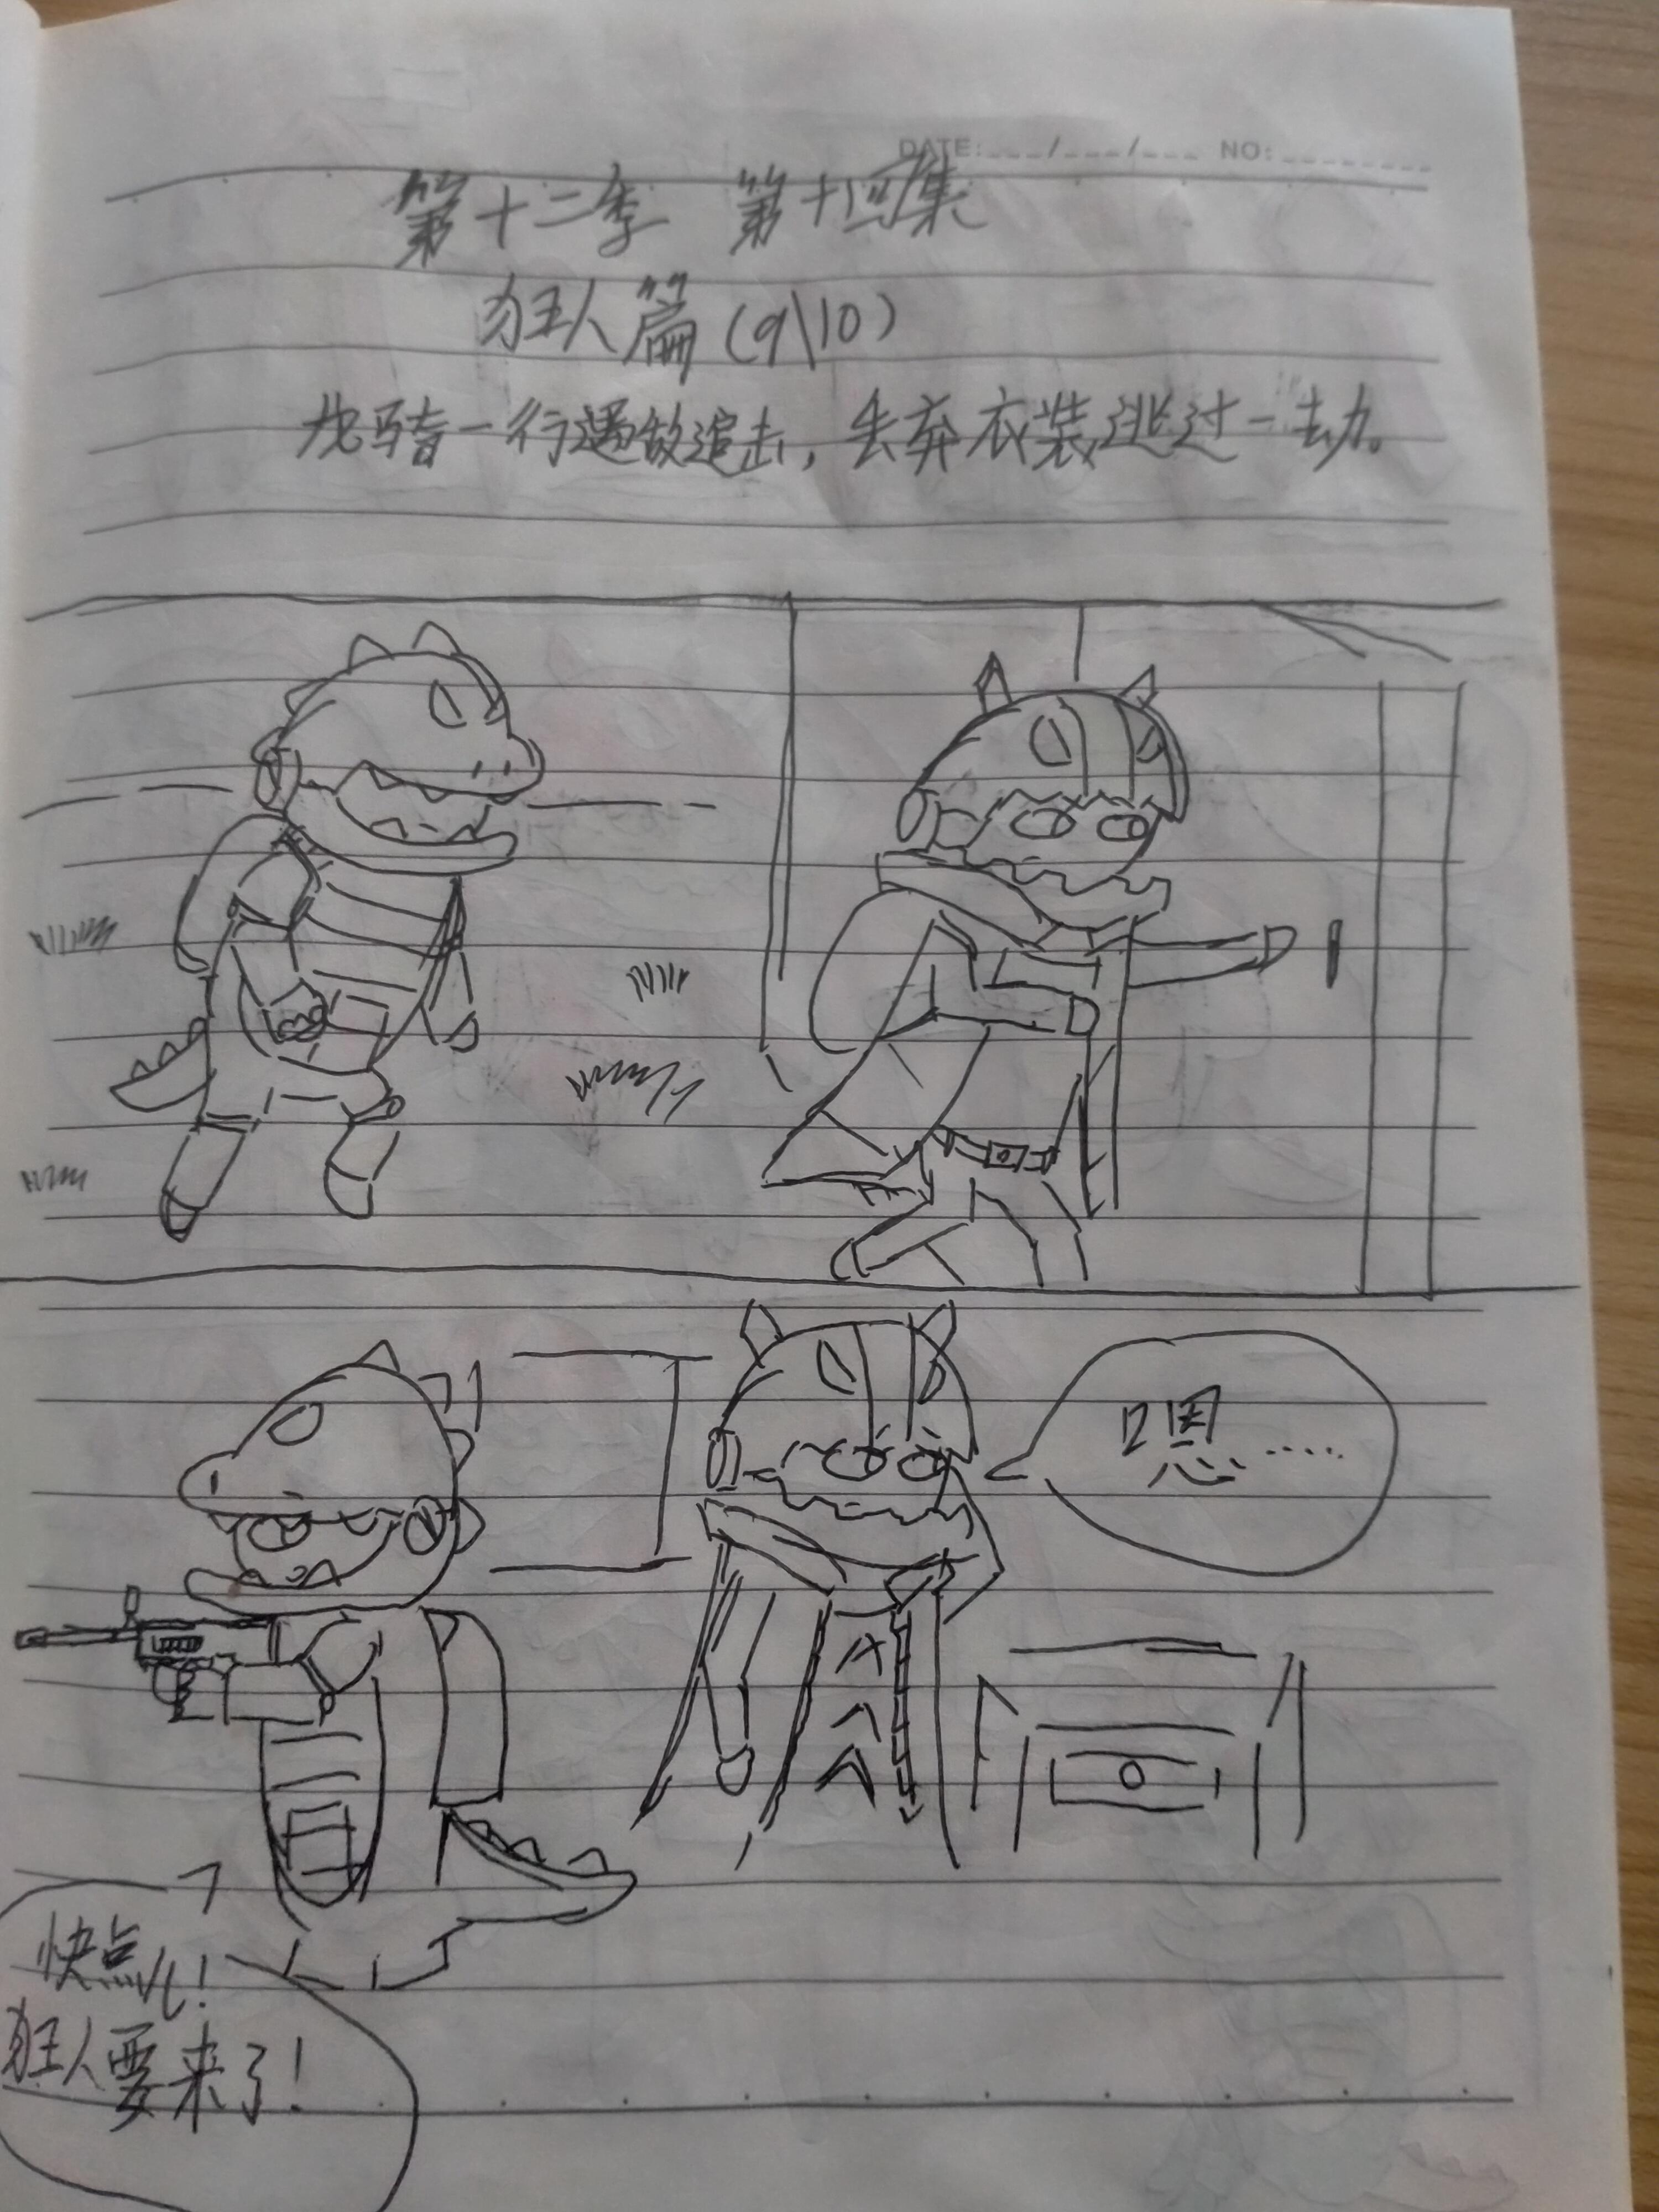 DATE:___/___/___ NO:________
第十二季 第十四集
狂人篇(9\10)
龙骑一行遇敌追击,丢弃衣装逃过一劫。
嗯……
快点儿!
狂人要来了!